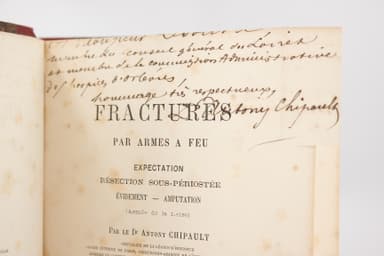 membre du conseil général du Loiret
et membre de la commission administrative
des hospices d'Orléans,
hommage très respectueux,
Dr Antony Chipault
FRACTURES
PAR ARMES A FEU
EXPECTATION
RÉSECTION SOUS-PÉRIOSTÉE
ÉVIDEMENT — AMPUTATION
PAR LE Dr ANTONY CHIPAULT